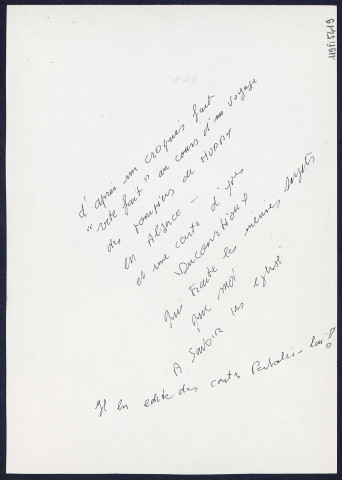 d'après un croquis fait
"vite fait" au cours d'un voyage
des pompiers de
en Alsace —
et une carte d'
qui traite les mêmes sujets
que moi
A savoir les eglises
Il en edite des cartes Postales - lui!